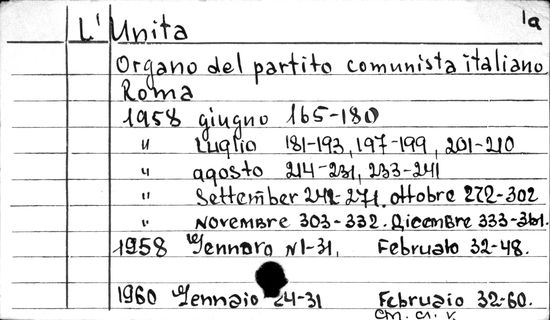 1a
L'Unita
Organo del partito comunista italiano.
Roma
1958 giugno 165-180
" Luglio 181-193, 197-199, 201-210
" agosto 214-231, 233-241
" Settember 242-271. ottobre 272-302
" Novembre 303-332. Dicembre 333-361.
1958 Gennaro N1-31, Februato 32-48.
1960 Gennaio 24-31 Februaio 32-60.
см. сл. к.